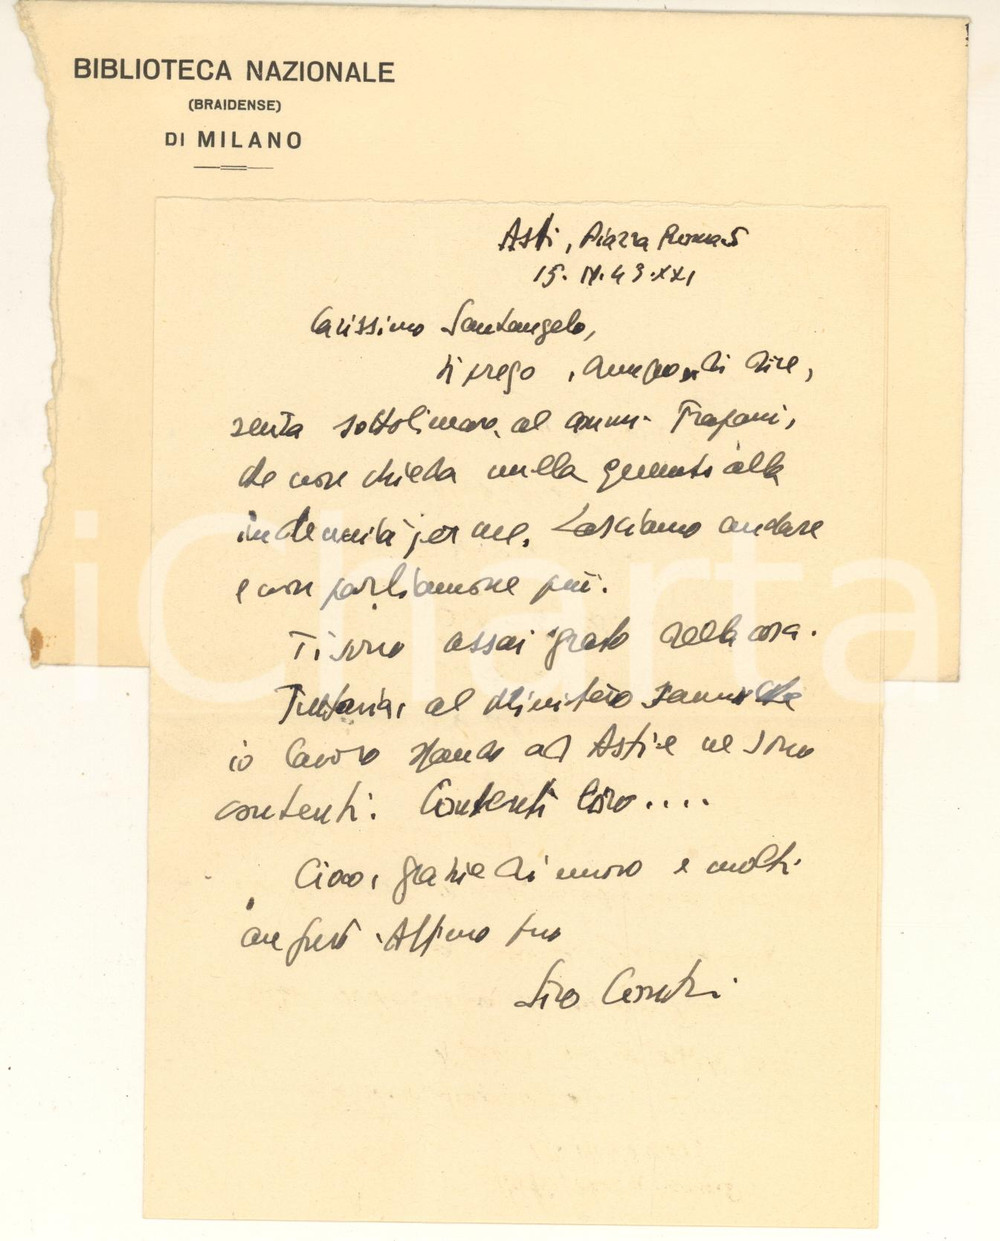 BIBLIOTECA NAZIONALE
(BRAIDENSE)
DI MILANO
Asti, Piazza Roma 5
15. IV. 43. XXI
Carissimo Santangelo,
ti prego, di dire,
senza al comm. Trapani,
che non chieda nulla quanto alla
indennità per me. Lasciamo andare
e non parliamone più.
Ti sono assai grato della cosa.
Tuttavia, al Ministero sanno che
io lavoro stando ad Asti e ne sono
contenti. Contenti loro....
Ciao, grazie di nuovo e molti
auguri. Aff.mo tuo
iCharta